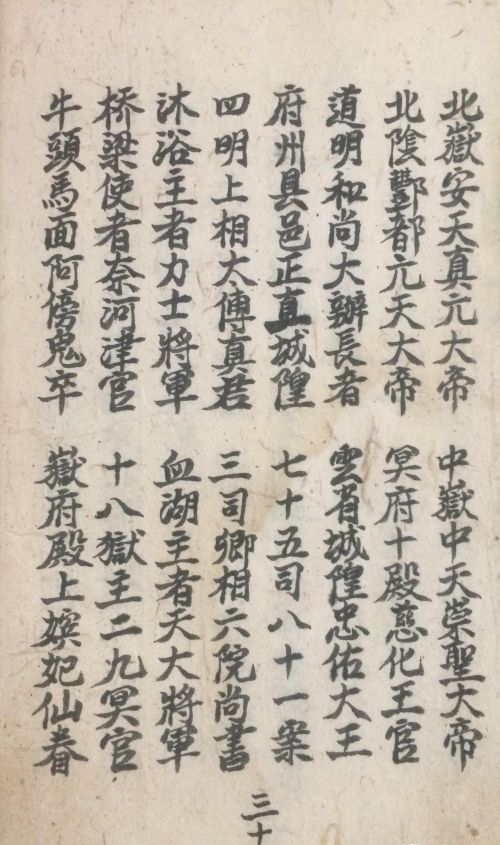 北嶽安天真元大帝　中嶽中天崇聖大帝
北陰酆都元天大帝　冥府十殿慈化王官
道明和尚大辦長者　雲省城隍忠佑大王
府州县邑正直城隍　七十五司八十一案
四明上相大傅真君　三司卿相六院尚書
沐浴主者力士將軍　血湖主者天大將軍
桥梁使者奈河津官　十八獄王二九冥官
牛頭馬面阿傍鬼卒　嶽府殿上嬪妃仙眷
三十